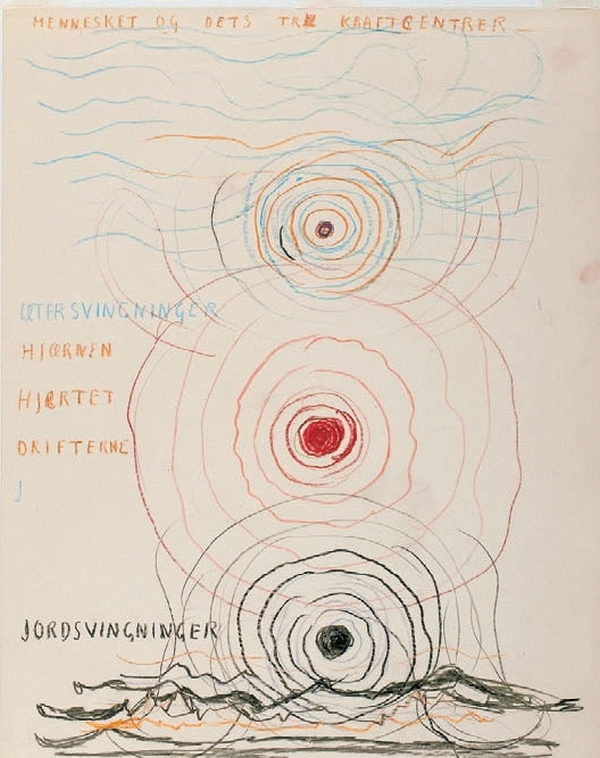 MENNESKET OG DETS TRE KRAFTCENTRER
ÆTERSVINGNINGER
HJÆRNEN
HJERTET
DRIFTERNE
J
JORDSVINGNINGER